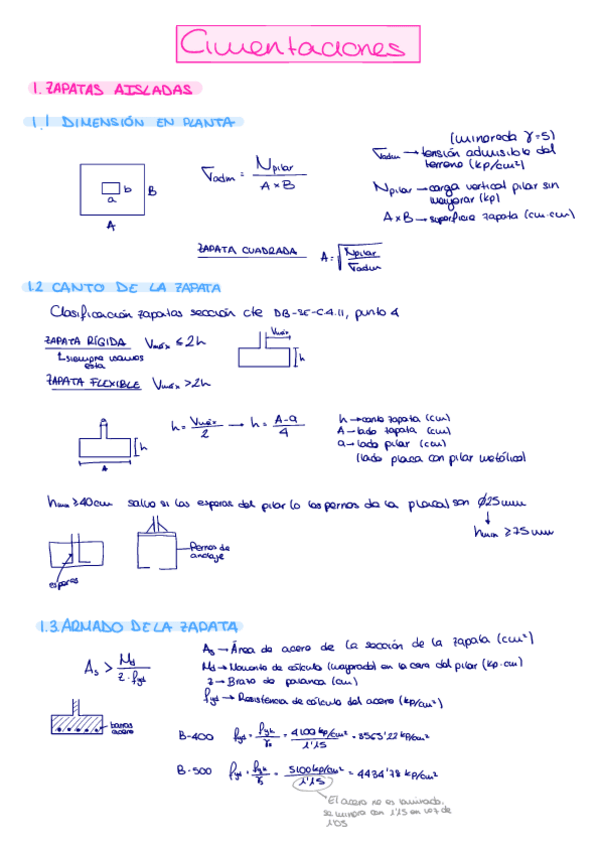 Cimentaciones
1. ZAPATAS AISLADAS
1.1 DIMENSIÓN EN PLANTA
(minorada γ=5)
σadm = Npilar / A×B
σadm → tensión admisible del
terreno (kp/cm²)
Npilar → carga vertical pilar sin
mayorar (kp)
A×B → superficie zapata (cm·cm)
a b B
A
ZAPATA CUADRADA A = √ Npilar / σadm
1.2 CANTO DE LA ZAPATA
Clasificación zapatas sección cte DB-SE-C 4.1.1, punto 4
ZAPATA RÍGIDA Vmáx ≤ 2h
siempre usamos
esta
Vmáx
h
ZAPATA FLEXIBLE Vmáx > 2h
a
h
A
h = Vmáx / 2 → h = A-a / 4
h → canto zapata (cm)
A → lado zapata (cm)
a → lado pilar (cm)
(lado placa con pilar metálico)
hmin ≥ 40cm salvo si las esperas del pilar (o los pernos de la placa) son Ø25mm
↓
hmin ≥ 75 mm
Pernos de
anclaje
esperas
1.3. ARMADO DE LA ZAPATA
As > Md / z·fyd
As → Área de acero de la sección de la zapata (cm²)
Md → Momento de cálculo (mayorado) en la cara del pilar (kp·cm)
z → Brazo de palanca (cm)
fyd → Resistencia de cálculo del acero (kp/cm²)
barras
acero
B-400 fyd = fyk / γs = 4100 kp/cm² / 1'15 = 3565'22 kp/cm²
B-500 fyd = fyk / γs = 5100 kp/cm² / 1'15 = 4434'78 kp/cm²
El acero no es laminado,
se minora con 1'15 en vez de
1'05